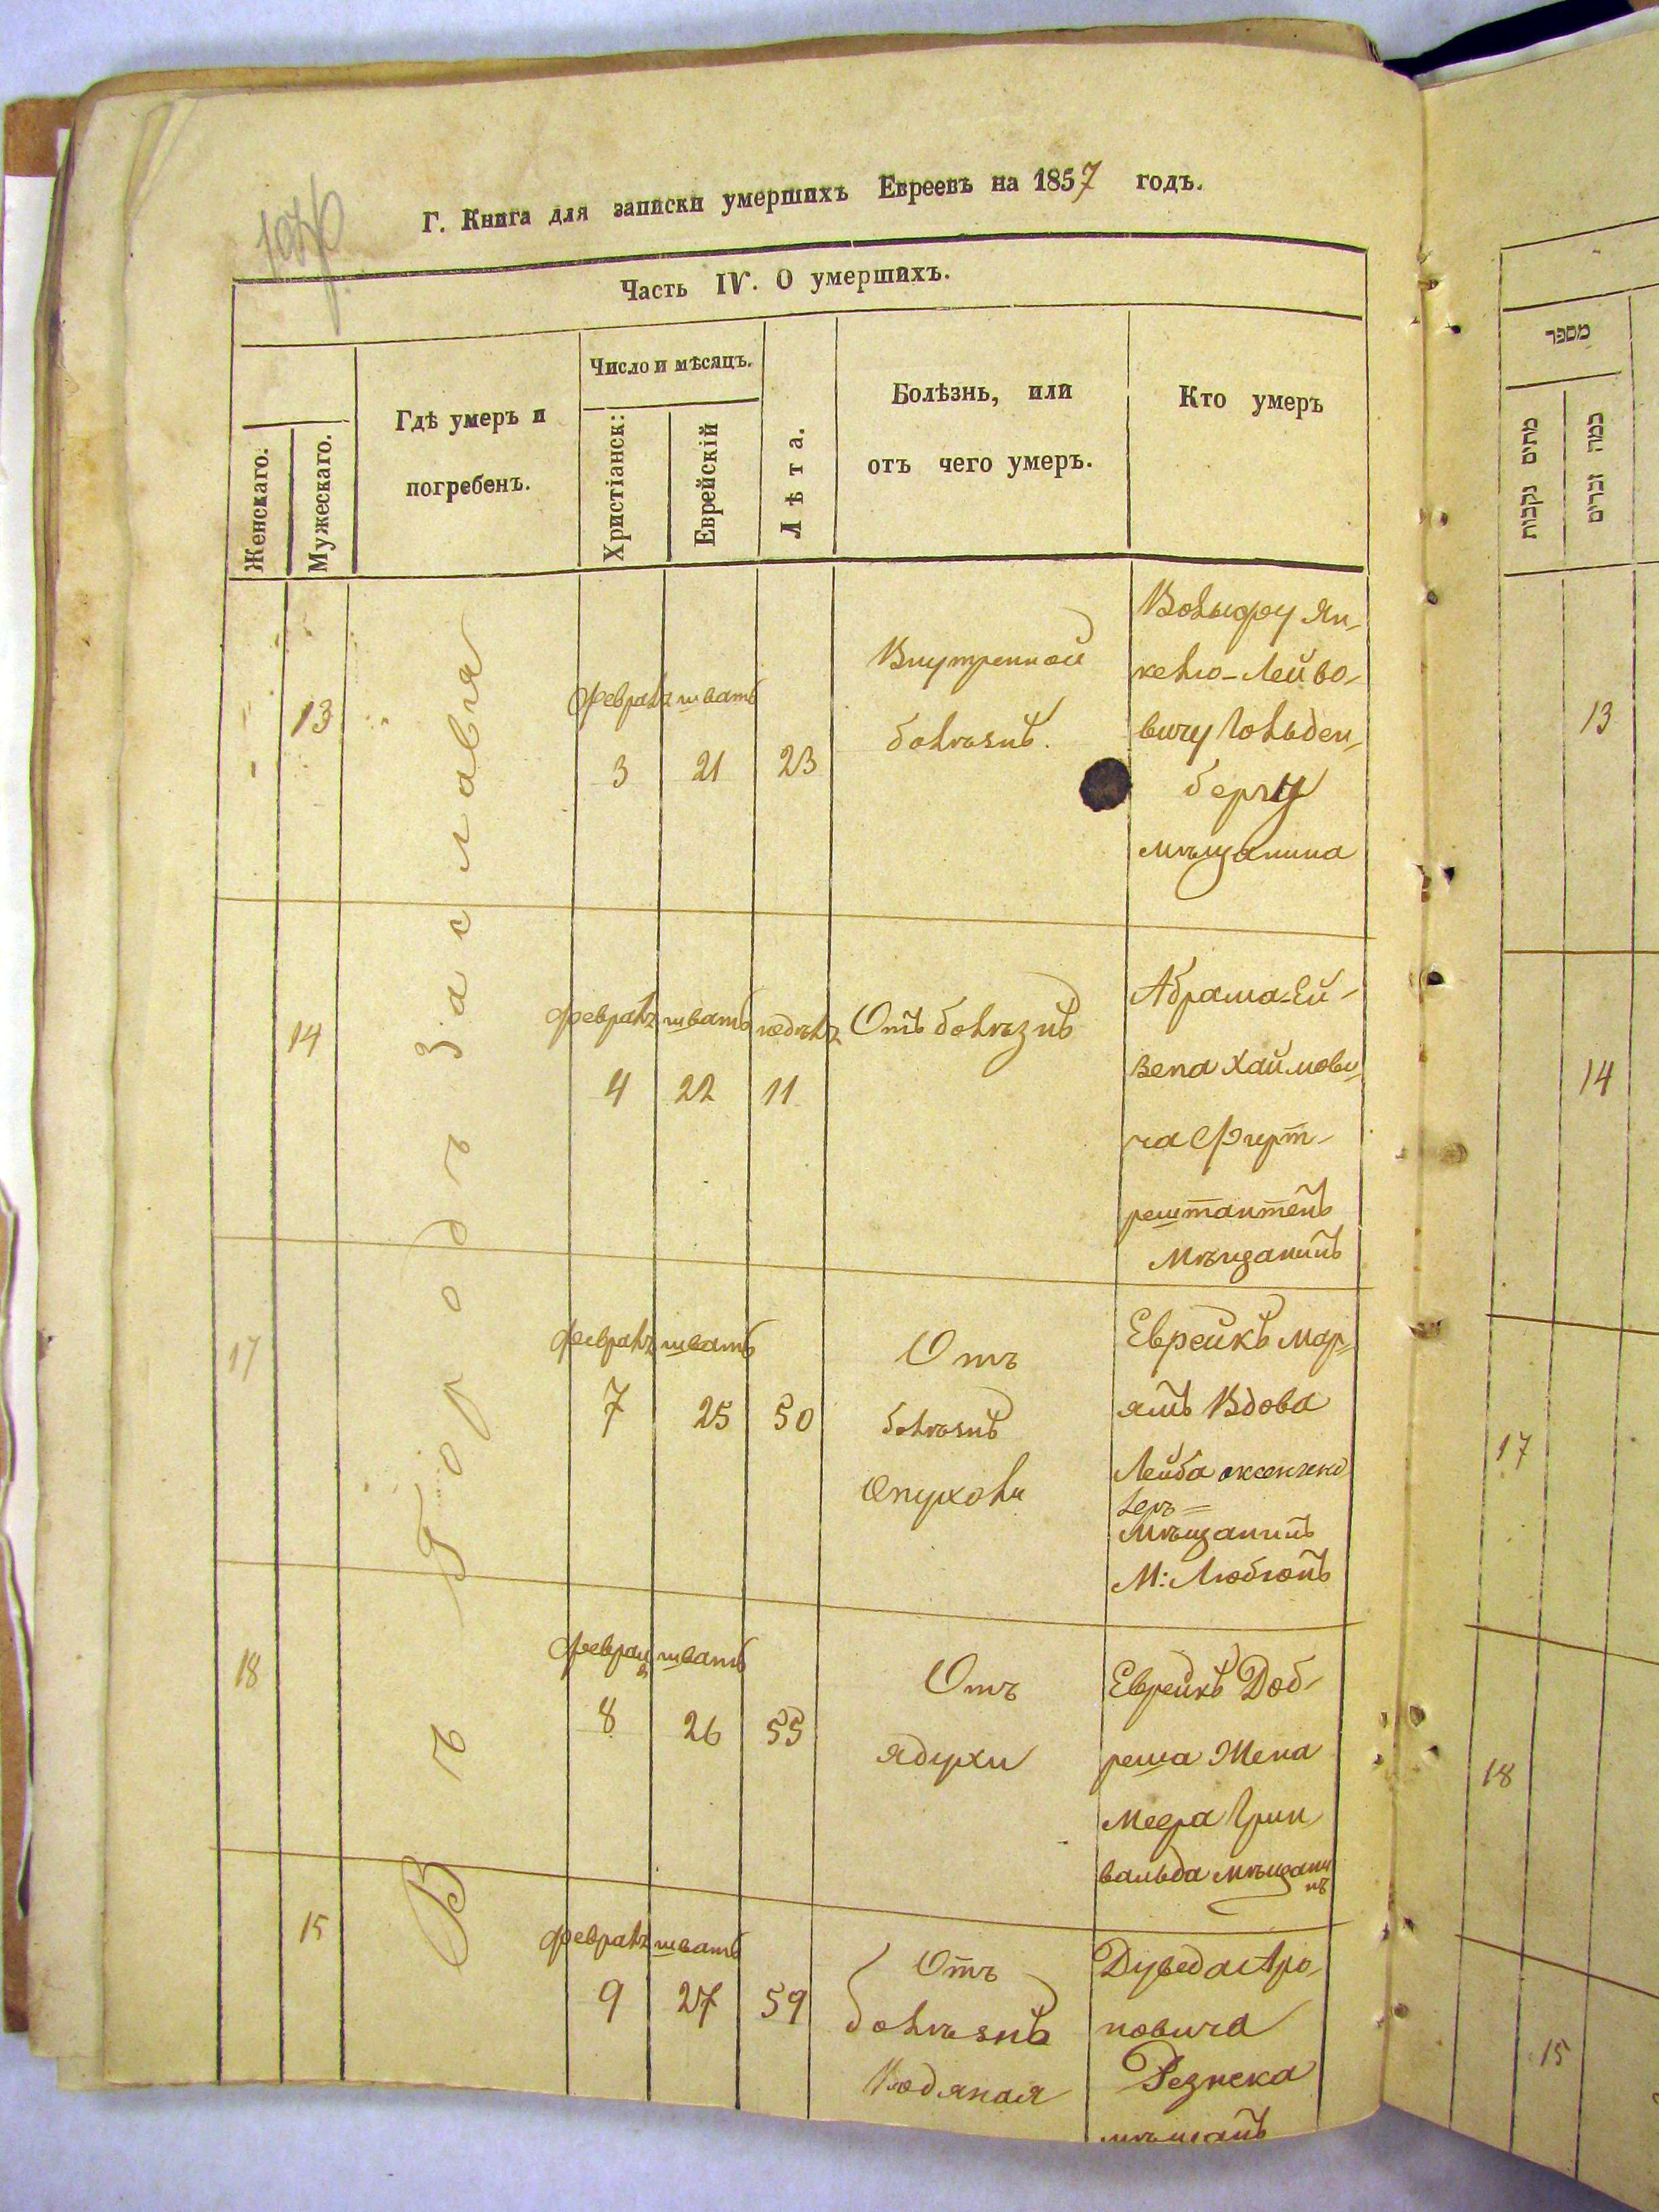 Г. Книга для записки умершихъ Евреевъ на 1857 годъ.
Часть IV. О умершихъ.
Женскаго.
Мужескаго.
Гдѣ умеръ и
погребенъ.
Число и мѣсяцъ.
Христіанск:
Еврейскій
Лѣта.
Болѣзнь, или
отъ чего умеръ.
Кто умеръ
Въ Городъ Заславля
13
февраль
3
шватъ
21
23
Внутренной
болѣзнѣ.
Вольфу Ян-
келю-Лейбо-
вичу Гольден-
бергу
мѣщанина
14
февраль
4
шватъ
22
недѣль
11
Отъ болѣзнѣ
Абрама-Ей-
зена Хаймови-
ча
мѣщанинъ
17
февраль
7
шватъ
25
50
Отъ
болѣзнѣ
Опухоли
Еврейкѣ Мар-
ямъ Вдова
Лейба
мѣщанинъ
М:
18
февраля
8
шватъ
26
55
Отъ
ядухи
Еврейкѣ Доб-
реша Жена
Меера Грин
вальда мѣщани
нъ
15
февраль
9
шватъ
27
59
Отъ
болѣзнѣ
Водяная
Дуведа Аро-
новича
Резнека
מספר
מתים נקבות
כמה זכרים
13
14
17
18
15